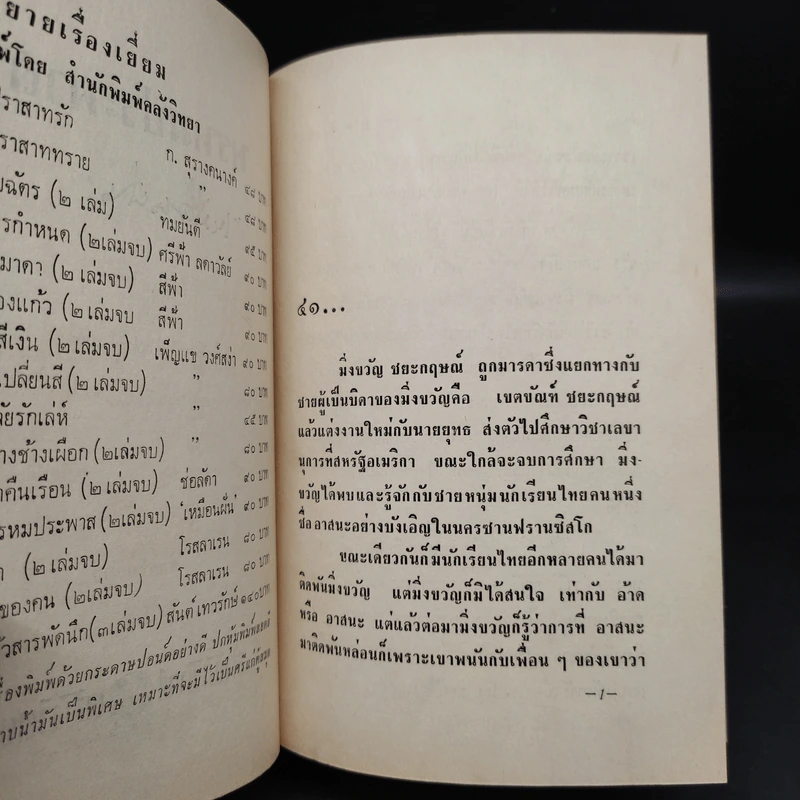 ยายเรื่องเยี่ยม
พ์โดย สำนักพิมพ์คลังวิทยา
ปราสาทรัก ก. สุรางคนางค์ ๔๘ บาท
ราสาททราย ” ๔๘ บาท
ฉัตร (๒ เล่ม) ทมยันตี ๙๕ บาท
รกำหนด (๒เล่มจบ) ศรีฟ้า ลดาวัลย์ ๙๐ บาท
มาดา (๒ เล่มจบ) สีฟ้า ๙๐ บาท
องแก้ว (๒ เล่มจบ สีฟ้า ๙๐ บาท
สีเงิน (๒ เล่มจบ) เพ็ญแข วงศ์สง่า ๙๐ บาท
เปลี่ยนสี (๒ เล่มจบ) ” ๘๐ บาท
ยรักเล่ห์ ” ๔๕ บาท
างช้างเผือก (๒เล่มจบ) ” ๘๐ บาท
คืนเรือน (๒ เล่มจบ) ช่อลัดา ๙๐ บาท
รหมประพาส (๒เล่มจบ) ‘เหมือนฝัน’ ๙๐ บาท
(๒ เล่มจบ) โรสลาเรน ๘๐ บาท
ของคน (๒เล่มจบ) โรสลาเรน ๘๐ บาท
วสารพัดนึก (๓เล่มจบ) สันต์ เทวรักษ์ ๑๔๐ บาท
องพิมพ์ด้วยกระดาษปอนด์อย่างดี ปกหุ้มพิมพ์
าบน้ำมันเป็นพิเศษ เหมาะที่จะมีไว้เป็นศรีแก่ตู้
๔๑...
มิ่งขวัญ ชยะกฤษณ์ ถูกมารดาซึ่งแยกทางกับ
ชายผู้เป็นบิดาของมิ่งขวัญคือ เขตขัณฑ์ ชยะกฤษณ์
แล้วแต่งงานใหม่กับนายยุทธ ส่งตัวไปศึกษาวิชาเลขา
นุการที่สหรัฐอเมริกา ขณะใกล้จะจบการศึกษา มิ่ง-
ขวัญได้พบและรู้จักกับชายหนุ่มนักเรียนไทยคนหนึ่ง
ชื่อ อาสนะอย่างบังเอิญในนครซานฟรานซิสโก
ขณะเดียวกันก็มีนักเรียนไทยอีกหลายคนได้มา
ติดพันมิ่งขวัญ แต่มิ่งขวัญก็มิได้สนใจ เท่ากับ อ๊าด
หรือ อาสนะ แต่แล้วต่อมามิ่งขวัญก็รู้ว่าการที่ อาสนะ
มาติดพันหล่อนก็เพราะเขาพนันกับเพื่อน ๆ ของเขาว่า
—1—